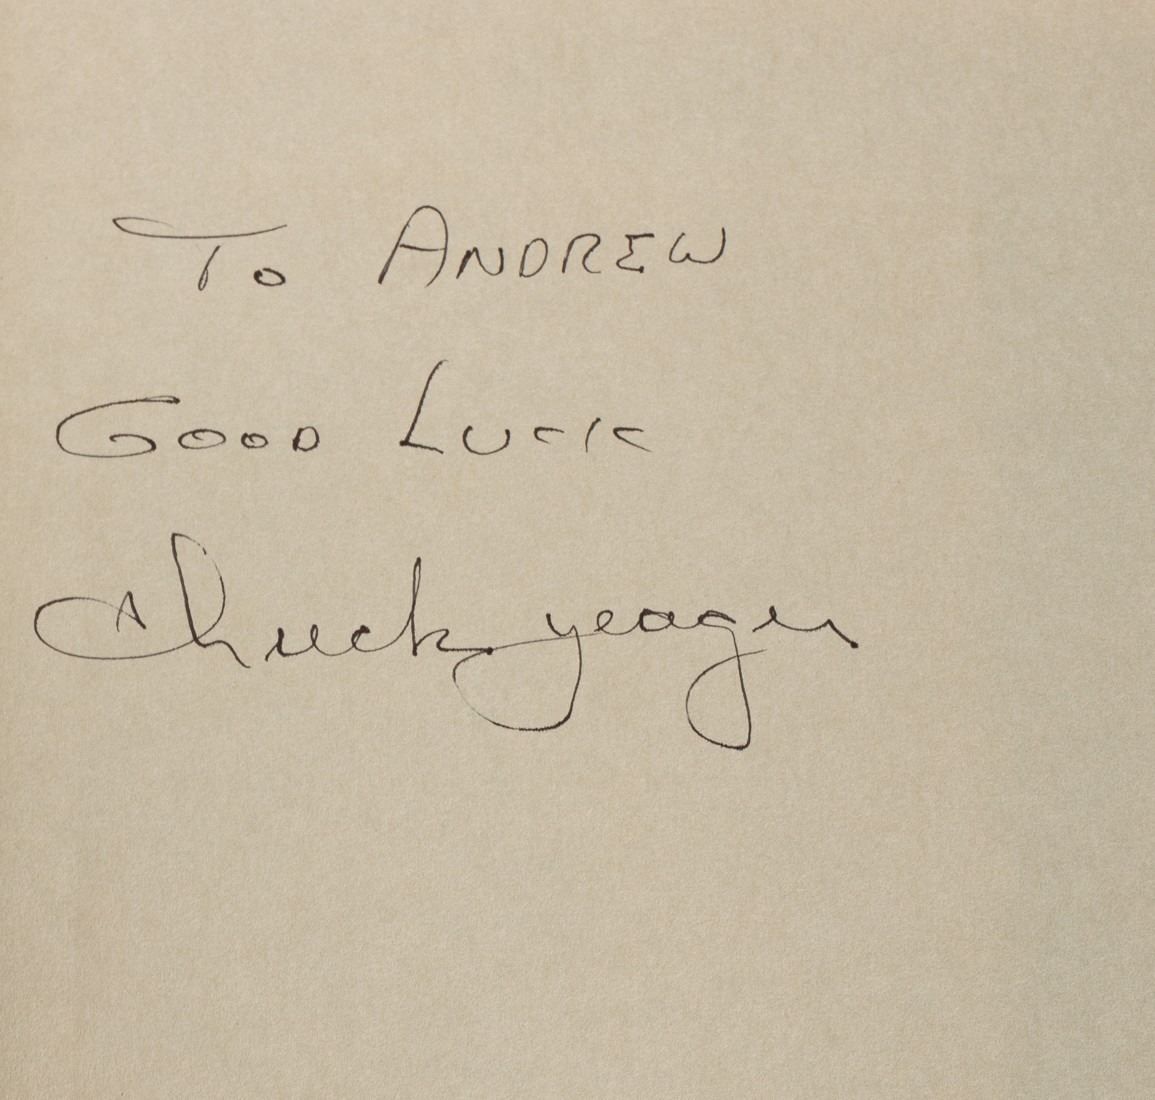 To ANDREW
GOOD LUCK
Chuck yeager